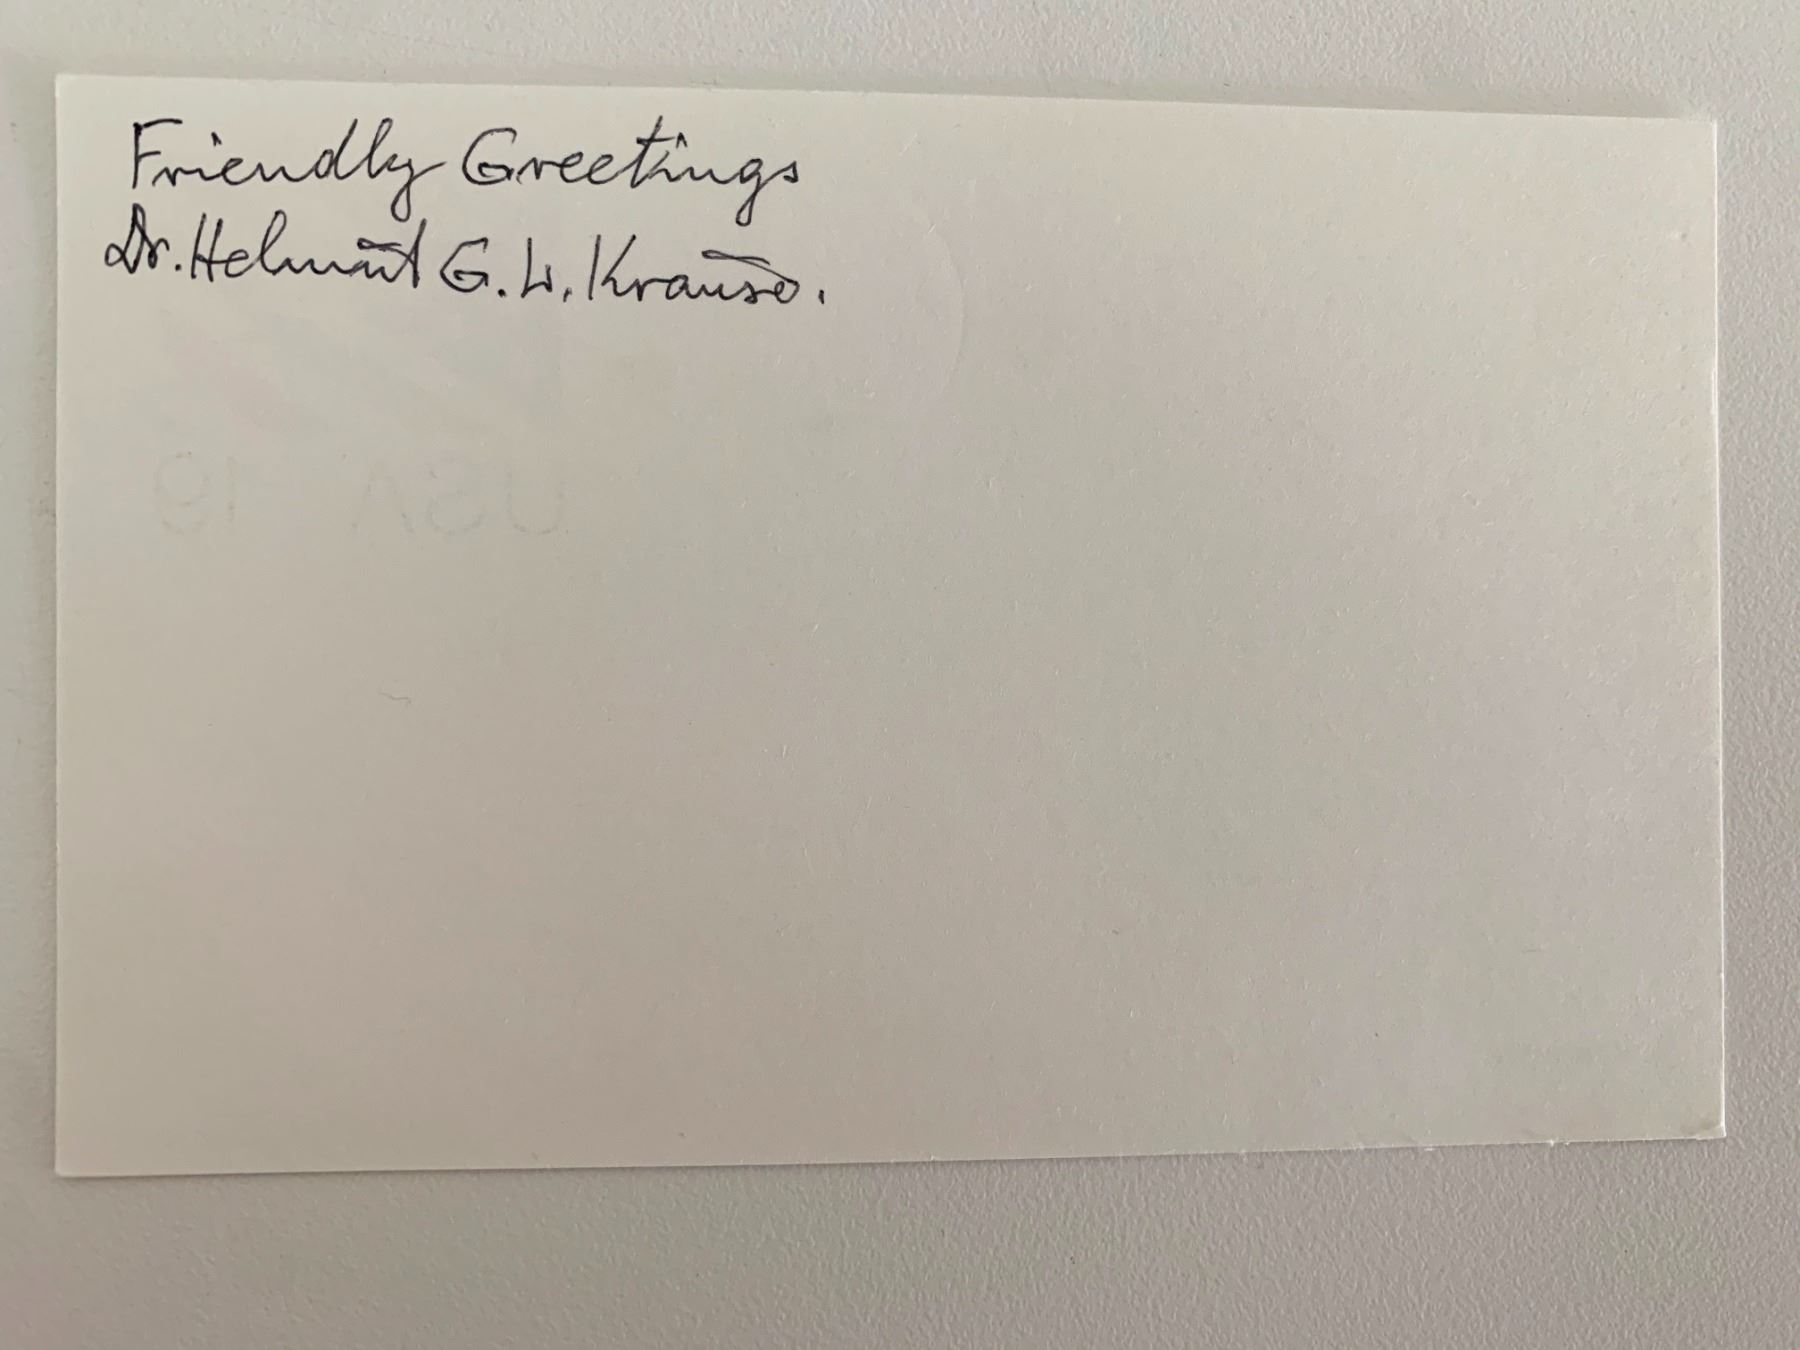 Friendly Greetings
Dr. Helmut G. L. Krause.
USA 19